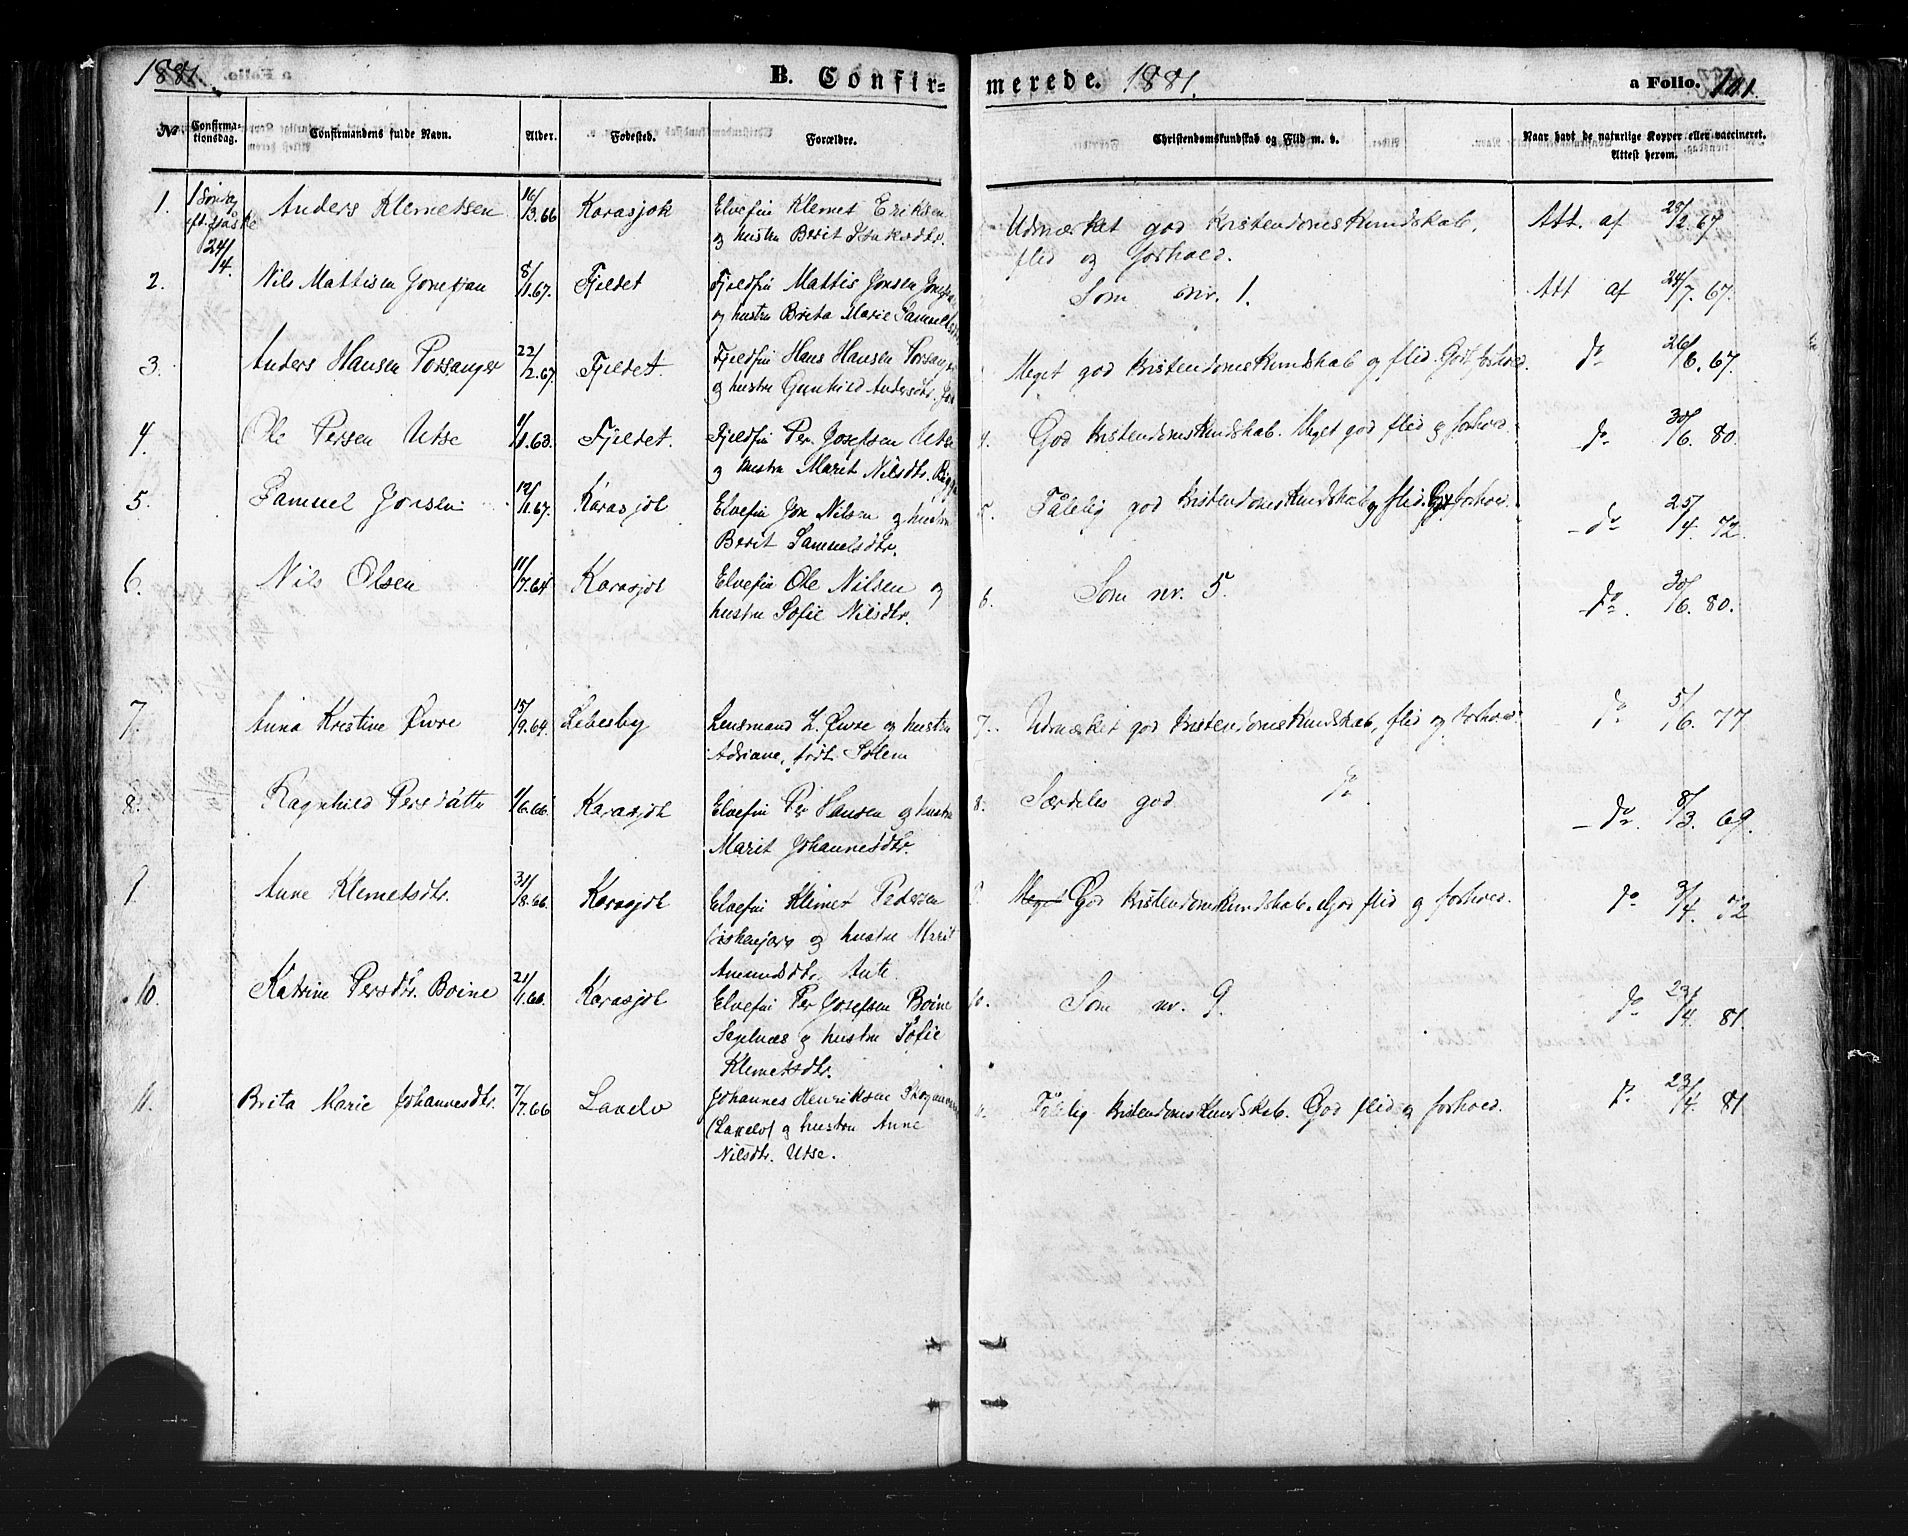 1881. B. Confir- merede. 1881. a Folio. 101.
No Confirma-tionsdag. Confirmandens fulde Navn. Alder. Fødested. Forældre. Christendomskundskab og Flid m. v. Naar havt de naturlige Kopper eller vaccineret. Attest herom.
1. 1 Sønda Anders Klemetsen 16/3.66 Karasjok Elvefin Klemet Eriksen Udmærket god Kristendomskundskab, Att. af 28/2 67.
eft. Påske og hustru Berit flid og forhold.
24/4.
2. Nils Mattisen 8/1.67. Fjeldet Fjeldfin Mattis Jonsen Som nr. 1. Att af 24/7. 67.
og hustru Brita Marie
3. Anders Hansen Porsanger 22/2.67. Fjeldet. Fjeldfin Hans Hansen Meget god Kristendomskundskab og flid. Godt forhold. do 26/6. 67.
og hustru Gunhild Andersdtr.
4. Ole Persen Utse 1/1.63. Fjeldet. Fjeldfin Per Josefsen Utse 4. God Kristendomskundskab. Meget god flid og forhold. do 30/6. 80.
og hustru Marit Nilsdtr.
5. Samuel Jonsen 12/1.67. Karasjok Elvefin Jon Nilsen og hustru 5. Tålelig god Kristendomskundskab og flid. forhold. do 25/4. 72.
Berit Samuelsdtr.
6. Nils Olsen 11/7.64 Karasjok Elvefin Ole Nilsen og 6. Som nr. 5. do. 30/6. 80.
hustru Sofie Nilsdtr.
7. Anna Kristine Øwre 15/9.64. Lebesby Lensmand L. Øwre og hustru 7. Udmærket god Kristendomskundskab, flid og forhold. do 5/6. 77
Adriane, født Solem
8. Ragnhild Persdatte 1/6.66. Karasjok Elvefin Per Hansen og hustru 8. Særdeles god do do. 8/3. 69.
Marit Johannesdtr.
9. Anne Klemetsdtr. 31/8.66. Karasjok Elvefin Klemet Pedersen 9. Meget God Kristendomskundskab. God flid og forhold. do 3/4. 72
og hustru Marit
Amundsdtr. Ante.
10. Katrine Persdtr. Boine 21/1.66. Karasjok Elvefin Per Josefsen Boine 10. Som nr. 9. do 23/4. 81.
og hustru Sofie
Klemetsdtr.
11. Brita Marie Johannesdtr. 7/7.66 Laxelv Johannes Henriksen 11. Tålelig Kristendomskundskab. God flid og forhold. do 23/4. 81
(Laxelv) og hustru Anne
Nilsdtr. Utse.